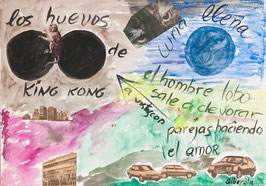 los huevos
de
KING KONG
luna llena
el hombre lobo
sale a devorar
parejas haciendo
el amor
Alberola